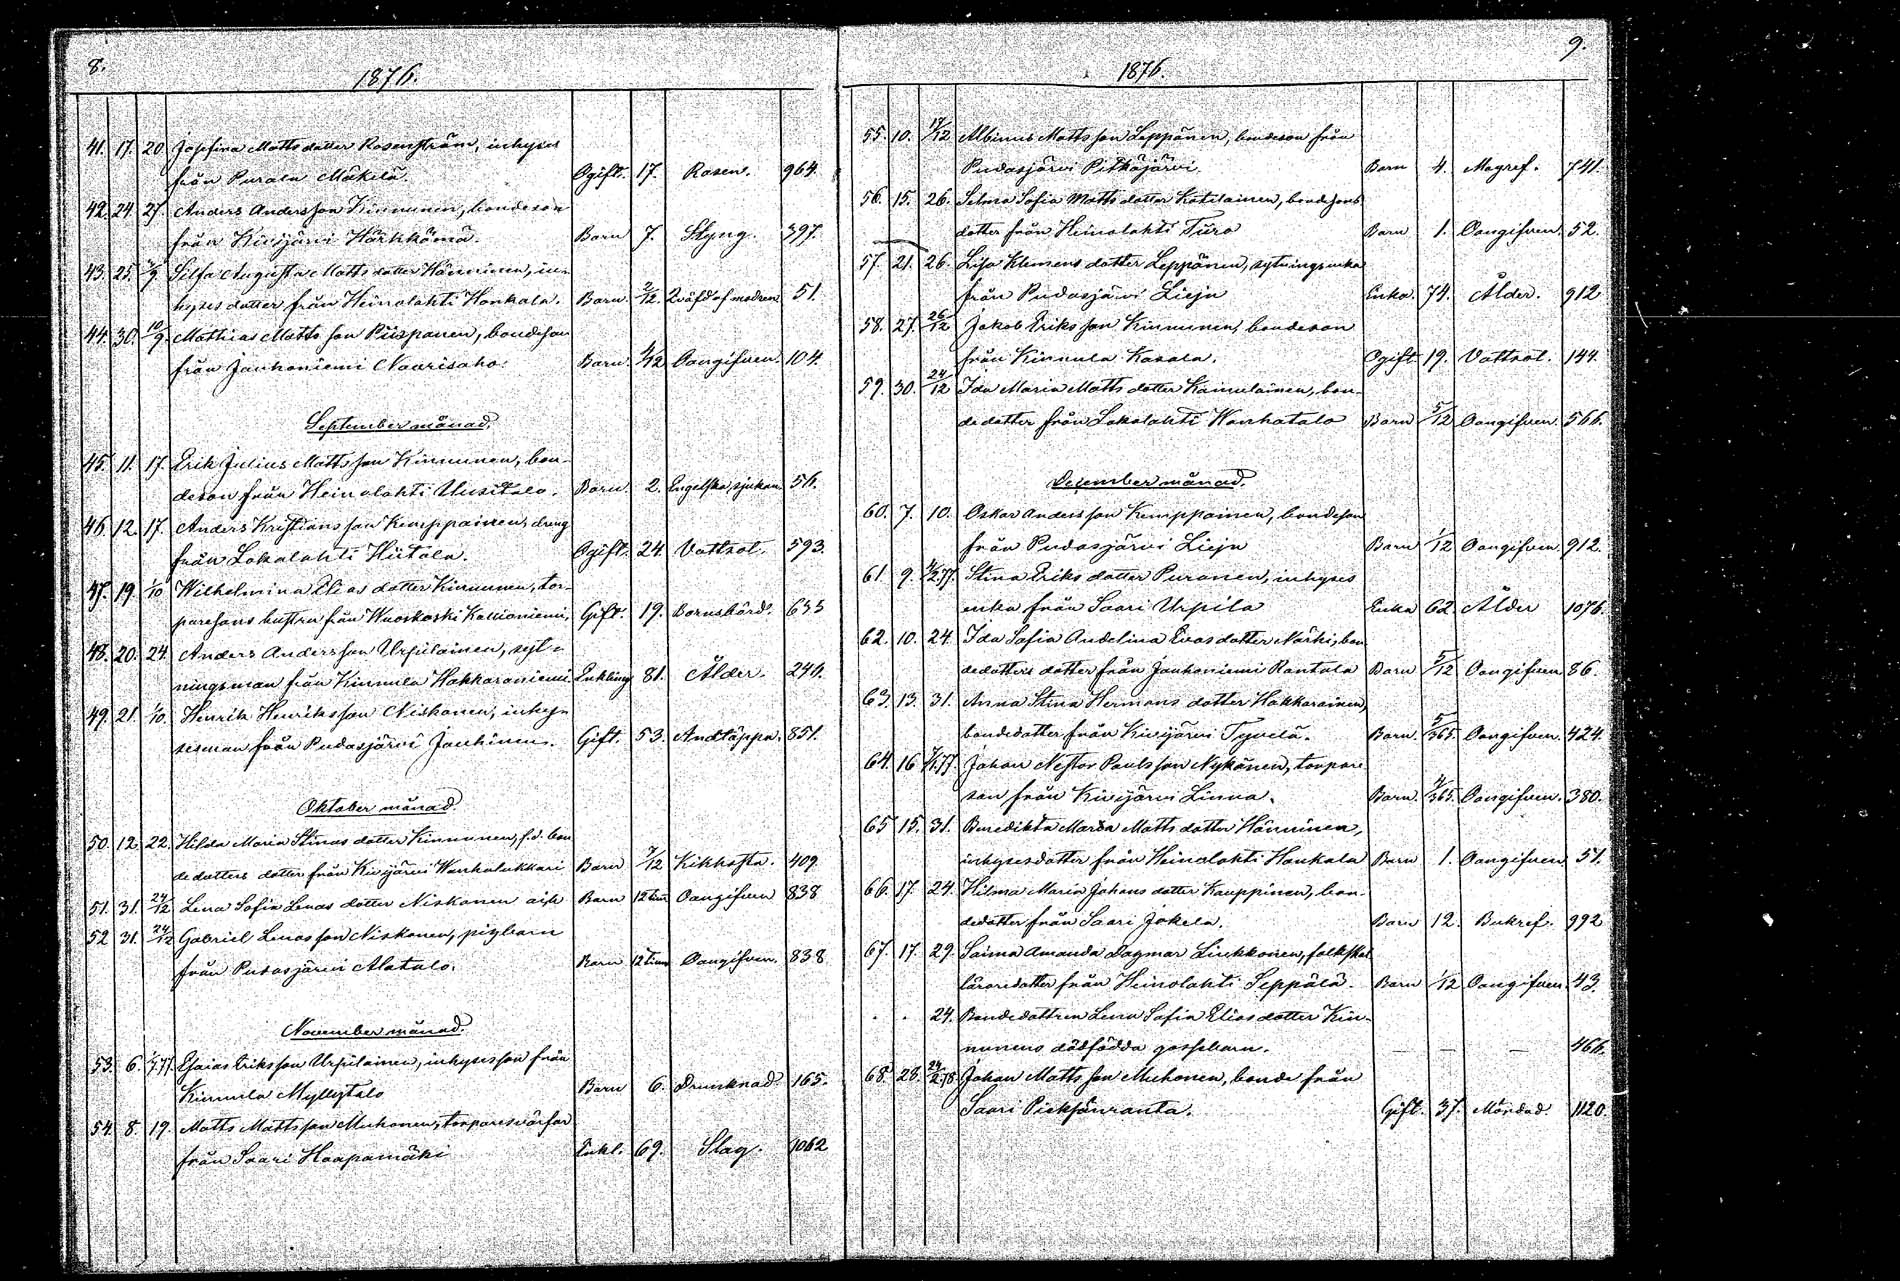 8.
1876.
41. 17. 20 Josefina Matts dotter Rosenström, inhyses
från Purala Mäkelä. Ogift. 17. Rosen. 964.
42. 24. 27 Anders Andersson Kinnunen, bondeson
från Kivijärvi Härkkömä. Barn 7. Styng. 397.
43. 25. 3/9. Silfa Augusta Matts dotter Hänninen, in-
hyses dotter från Heinolahti Honkala. Barn. 2/12. Qväfd af modren 51.
44. 30. 10/9. Mathias Matts son Piispanen, bondeson
från Jauhoniemi Naarisaho. Barn. /12 Oangifven. 104.
September månad.
45. 11. 17. Erik Julius Matts son Kinnunen, bon-
deson från Heinolahti Uusitalo. Barn. 2. Engelska sjukan. 56.
46. 12. 17. Anders Kristians son Kemppainen, dreng
från Lokalahti Hiitola. Ogift. 24. Vattsot. 593.
47. 19. 1/10 Wilhelmina Elias dotter Kinnunen, tor-
paresons hustru från Wuoskoski Kallioniemi, Gift. 19. Barnsbörd. 633
48. 20. 24. Anders Andersson Urpilainen, syt-
ningsman från Kinnula Hakkaraniemi Enkling 81. Ålder. 240.
49. 21. 1/10. Henrik Henriksson Niskanen, inhy-
sesman från Pudasjärvi Jauhinen. Gift. 53. Andtäppa. 851.
Oktober månad.
50. 12. 22. Hilda Maria Stinas dotter Kinnunen, f.d. bon
dedotters dotter från Kivijärvi Wanhalukkari Barn 7/12 Kikhosta. 409.
51. 31. 24/12 Lena Sofia Lenas dotter Niskanen Barn 12 tim Oangifven 838
52 31. 24/12 Gabriel Lenas son Niskanen, pigbarn
från Pudasjärvi Alatalo. Barn 12 tim Oangifven. 838
November månad.
53. 6. Esaias Eriksson Urpilainen, inhysesson från
Kinnula Myllytalo Barn 6. Drunknad. 165.
54. 8. 19. Matts Mattsson Muhonen, torparesvärfar
från Saari Haapamäki Enkl. 69. Slag. 1062
9.
1876.
55. 10. 17/12 Albinus Matts son Leppänen, bondeson från
Pudasjärvi Pitkäjärvi Barn 4. Magref. 741.
56. 15. 26. Selma Sofia Matts dotter Kotilainen, bondsons
dotter från Heinolahti Tiiro Barn 1. Oangifven. 52.
57. 21. 26. Lisa Klemens dotter Leppänen, sytningsenka
från Pudasjärvi Lieju Enka. 74. Ålder. 912
58. 27. 26/12 Jakob Eriks son Kinnunen, bondeson
från Kinnula Kasala. Ogift 19. Vattsot. 144.
59. 30. 24/12 Ida Maria Matts dotter Kainulainen, bon-
dedotter från Lokalahti Wanhatalo Barn 5/12 Oangifven. 566.
December månad.
60. 7. 10. Oskar Andersson Kemppainen, bondeson
från Pudasjärvi Lieju Barn 1/12 Oangifven. 912.
61. 9. Stina Eriks dotter Puranen, inhyses
enka från Saari Urpila Enka 62 Ålder 1076.
62. 10. 24. Ida Sofia Andelina Evas dotter Närhi, bon
dedotters dotter från Jauhoniemi Rantala Barn 5/12 Oangifven 86.
63. 13. 31. Anna Stina Hermans dotter Hakkarainen,
bondedotter från Kivijärvi Tyvelä. Barn. 5/365. Oangifven. 424.
64. 16 Johan Nestor Pauls son Nykänen, torpare
son från Kivijärvi Linna. Barn. 4/365. Oangifven. 380.
65 15. 31. Benedikta Maria Matts dotter Hänninen,
inhysesdotter från Heinolahti Honkala Barn 1. Oangifven 51.
66. 17. 24. Hilma Maria Johans dotter Kauppinen, bon-
dedotter från Saari Jokela. Barn 12. Bukref. 992
67. 17. 29. Saima Amanda Dagmar Liukkonen, folkskol
läraredotter från Heinolahti Seppälä. Barn 1/12 Oangifven. 43.
. . 24. Bondedottren Lena Sofia Elias dotter Kin-
nunens dödfödda gossebarn. — — — 466.
68. 28. 24/2.78 Johan Matts son Muhonen, bonde från
Saari Pieksänranta. Gift. 37. Mördad. 1120.